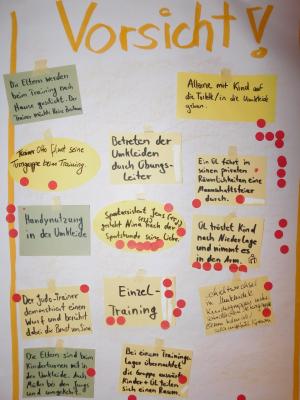 Vorsicht!
Die Eltern werden
beim Training nach
Hause geschickt. Der
Trainer möchte keine
Alleine mit Kind auf
die Toilette / in die Umkleide
gehen.
Trainer Otto filmt seine
Turngruppe beim Training.
Betreten der
Umkleiden
durch Übungs-
leiter
Ein ÜL führt in
seinen privaten
Räumlichkeiten eine
Mannschaftsfeier
durch.
Handynutzung
in der Umkleide
Sportassistent Jens
gesteht Nina nach der
Sportstunde seine Liebe.
ÜL tröstet Kind
nach Niederlage
und nimmt es
in den Arm.
Der Judo-Trainer
demonstriert einen
Wurf und berührt
dabei die Brust von Sina.
Einzel-
Training
in Umkleide
Die Eltern sind beim
Kinderturnen mit in
der Umkleide. Auch
Mütter bei den Jungs
und umgekehrt.
Bei einem Trainings-
lager übernachtet
die Gruppe auswärts
Kinder + ÜL teilen
sich einen Raum.